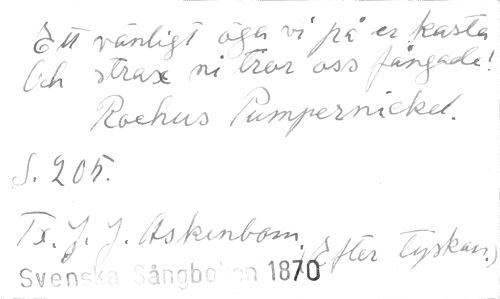 Ett vänligt öga vi på er kasta
Och strax ni tror oss fångade!
Rochus Pumpernickel.
S. 205.
Tx. J. J. Askenbom. (Efter tyskan.)
Svenska Sångboken 1870